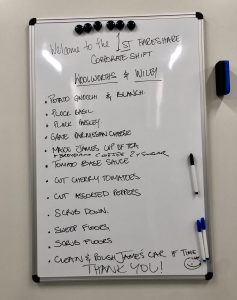 Welcome to the 1ST FareShare
Corporate Shift
Woolworths & Wiley
• Potato Gnocchi & Blanch
• Pluck Basil
• Pluck Parsley
• Grate Parmesan Cheese
• Made James cup of tea
2 Sugar
Tomato Base Sauce
• Cut Cherry Tomatoes
• Cut Assorted Peppers
• Scrub Down
• Sweep Floors
• Scrub Floors
• Clean & Polish James's Car if Time
Thank You!